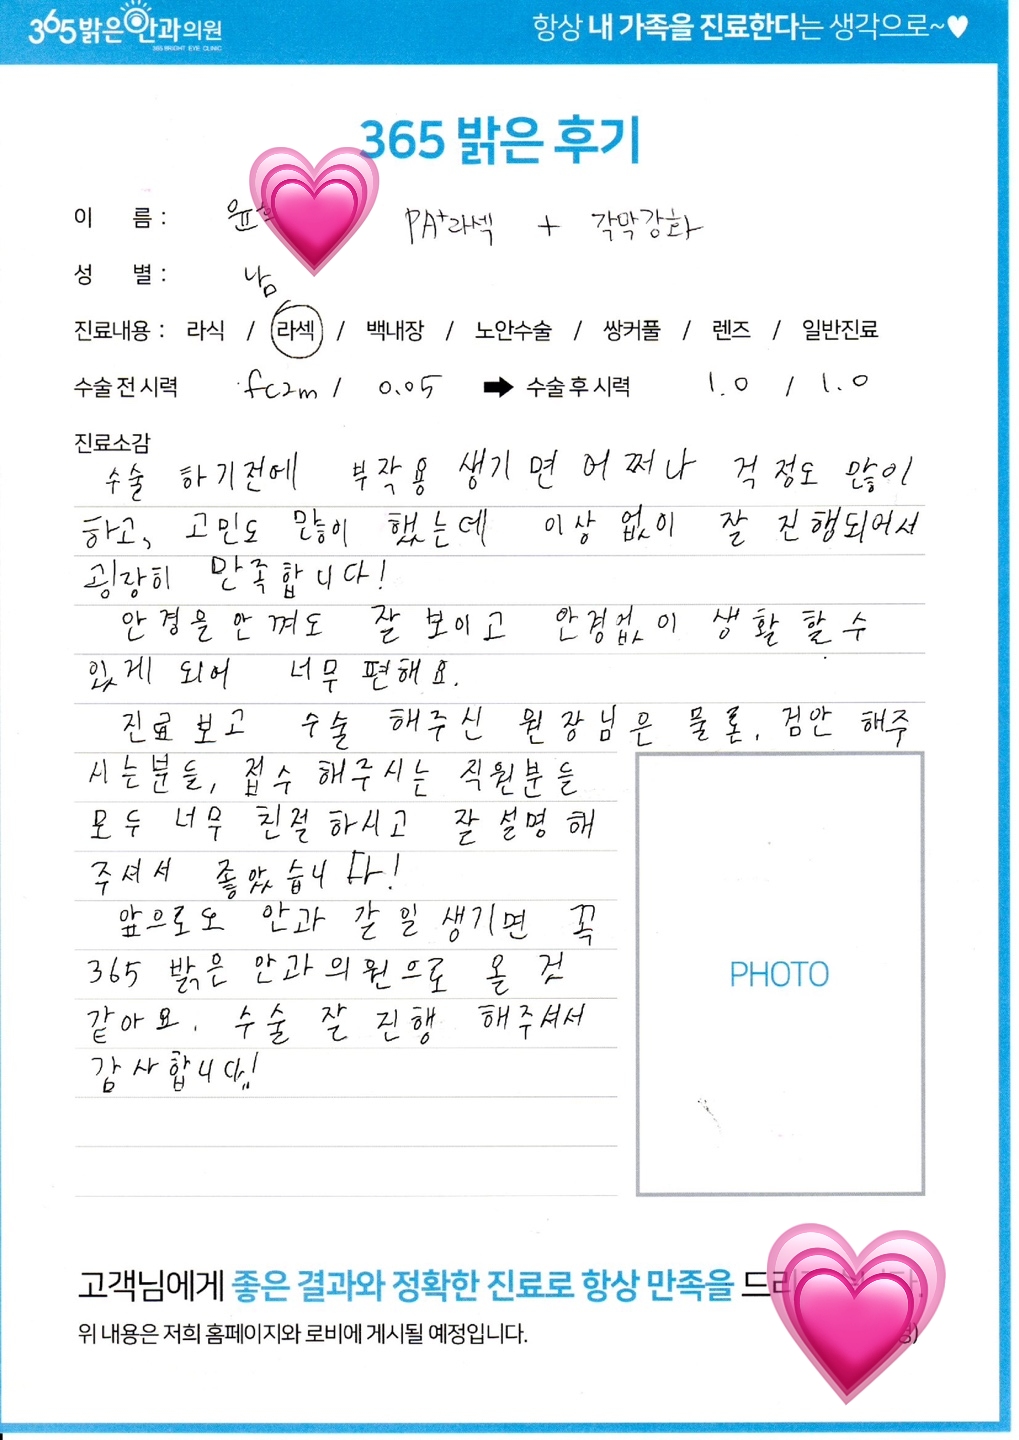 365밝은안과의원
365 BRIGHT EYE CLINIC
항상 내 가족을 진료한다는 생각으로~♥
365 밝은 후기
이 름 : 윤
PA+라섹 + 각막강화
성 별 : 남
진료내용 : 라식 / 라섹 / 백내장 / 노안수술 / 쌍커풀 / 렌즈 / 일반진료
수술 전 시력 fc2m / 0.05 ➡ 수술 후 시력 1.0 / 1.0
진료소감
수술 하기전에 부작용 생기면 어쩌나 걱정도 많이
하고, 고민도 많이 했는데 이상 없이 잘 진행되어서
굉장히 만족합니다!
안경을 안껴도 잘 보이고 안경없이 생활 할 수
있게 되어 너무 편해요.
진료 보고 수술 해주신 원장님은 물론, 검안 해주
시는분들, 접수 해주시는 직원분들
모두 너무 친절하시고 잘 설명 해
주셔서 좋았습니다!
앞으로도 안과 갈 일 생기면 꼭
365 밝은 안과의원으로 올 것
같아요. 수술 잘 진행 해주셔서
감사합니다!
PHOTO
고객님에게 좋은 결과와 정확한 진료로 항상 만족을
위 내용은 저희 홈페이지와 로비에 게시될 예정입니다.